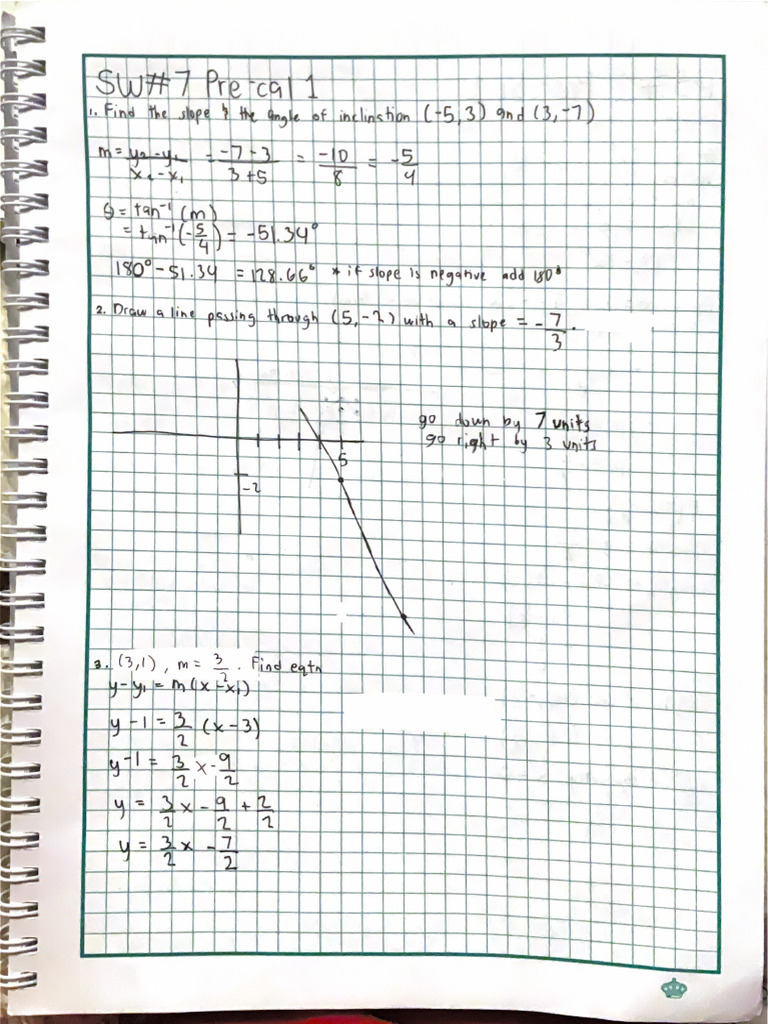 SW#7 Pre-cal 1
1. Find the slope & the angle of inclinstion (-5,3) and (3,-7)
m = y₂-y₁/x₂-x₁ = -7-3/3+5 = -10/8 = -5/4
θ = tan⁻¹(m)
= tan⁻¹(-5/4) = -51.34°
180° - 51.34 = 128.66° * if slope is negative add 180°
2. Draw a line passing through (5,-2) with a slope = -7/3.
go down by 7 units
go right by 3 units
5
-2
3. (3,1), m = 3/2. Find eqtn
y-y₁ = m(x-x₁)
y-1 = 3/2 (x-3)
y-1 = 3/2 x - 9/2
y = 3/2 x - 9/2 + 2/2
y = 3/2 x - 7/2